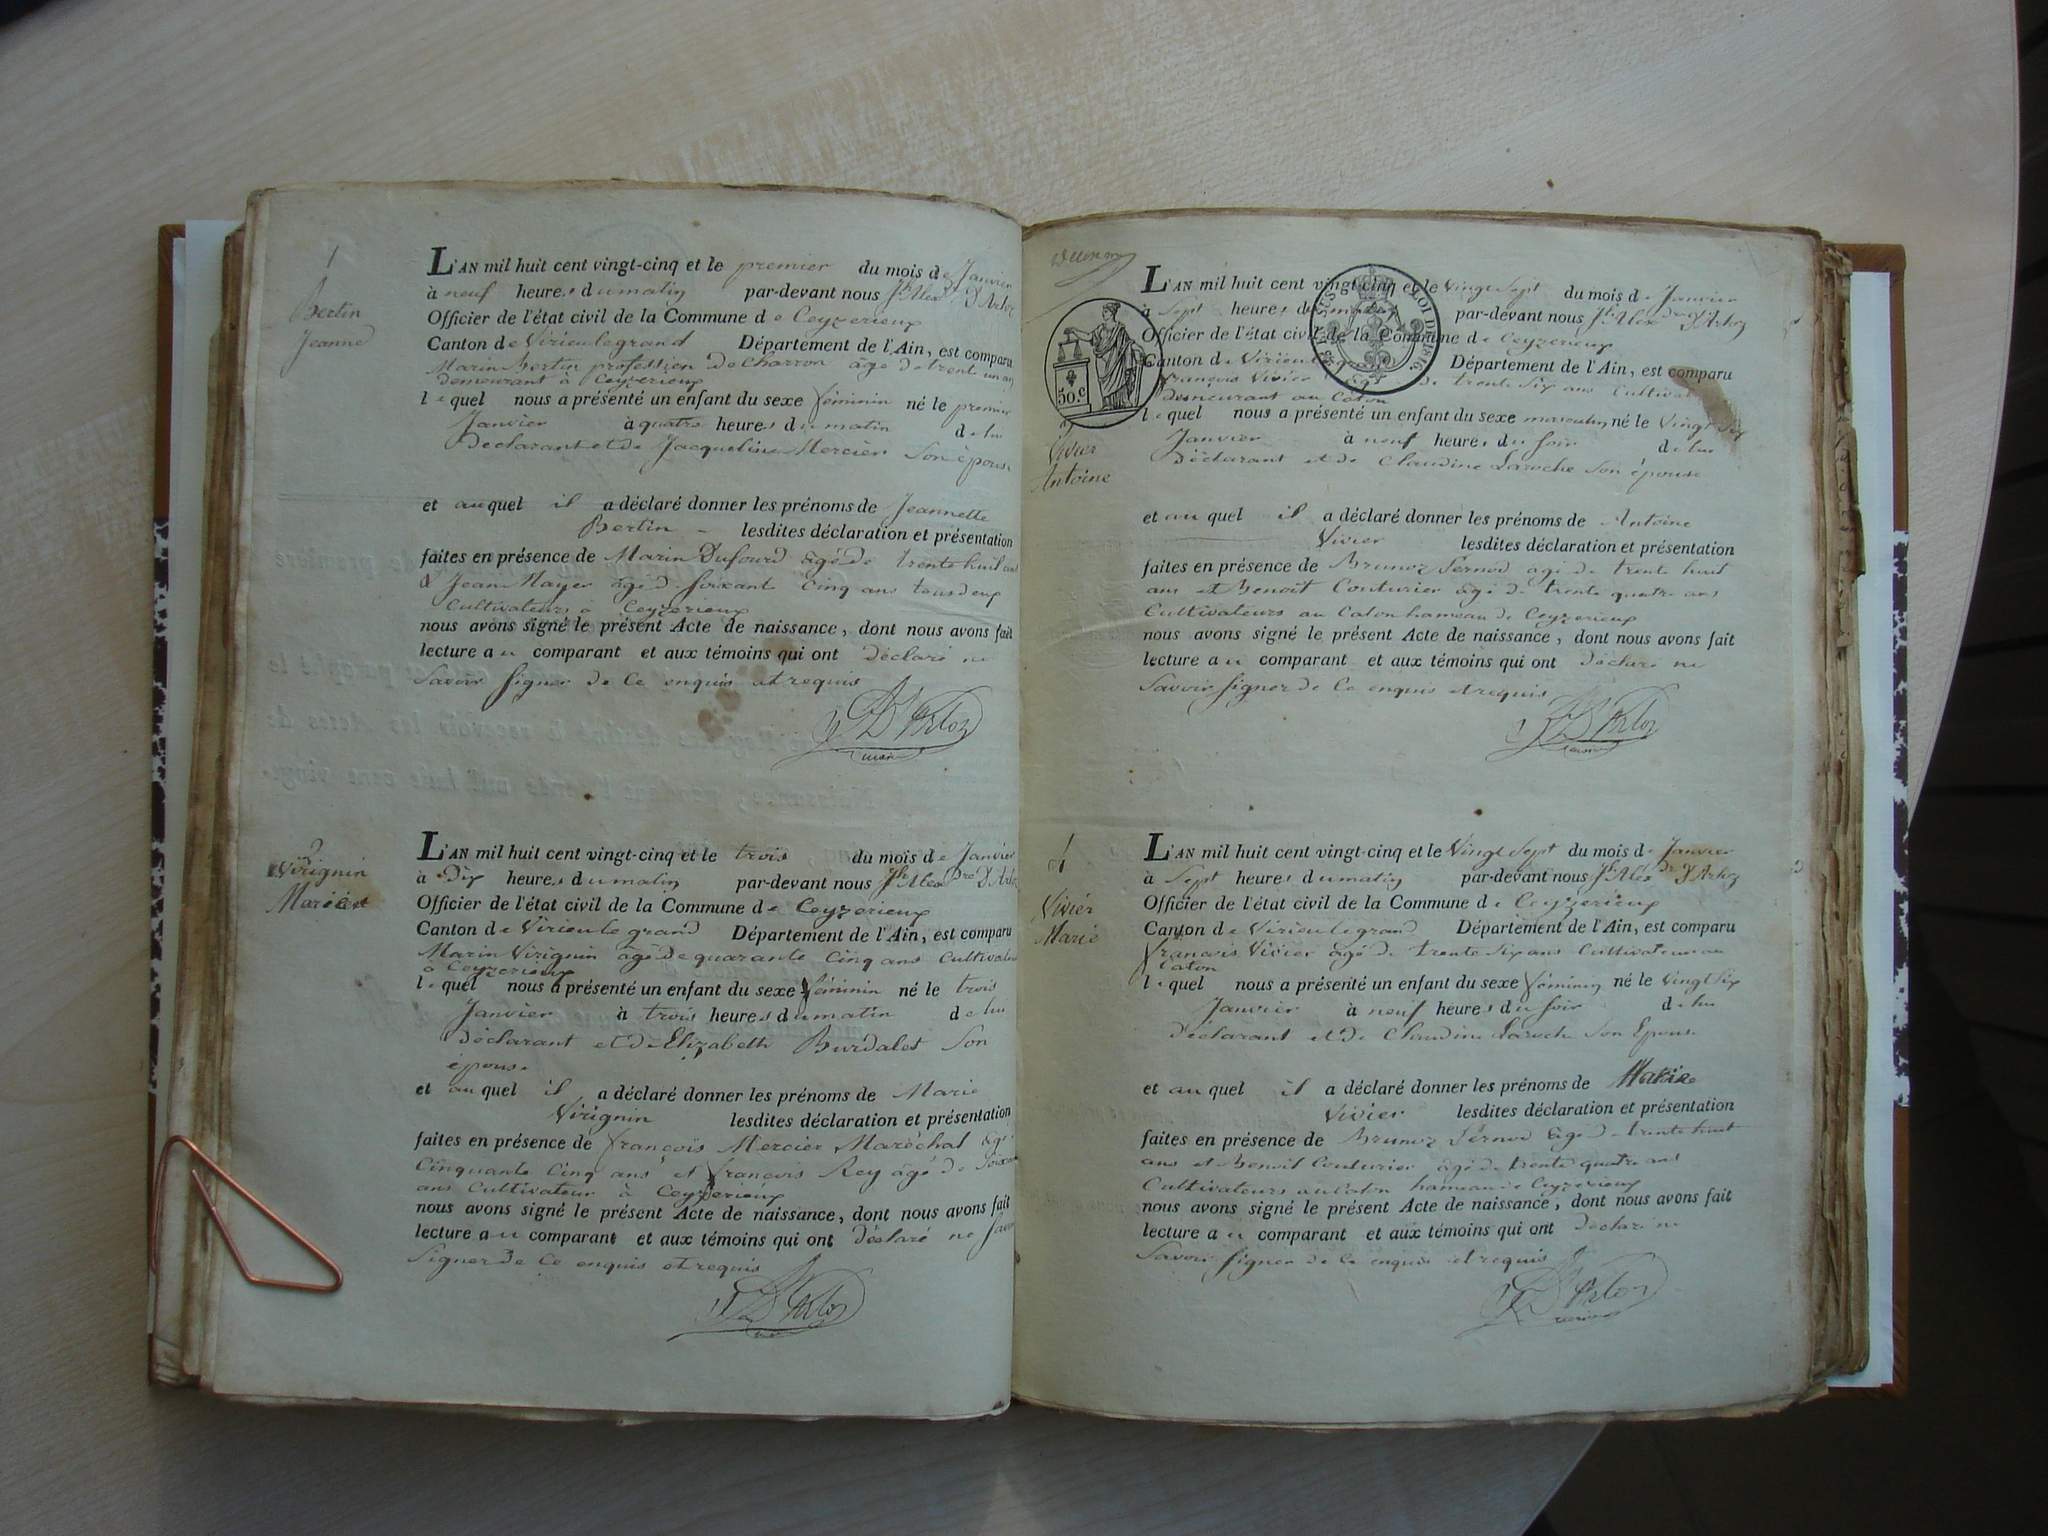 1
Bertin
Jeanne
L'AN mil huit cent vingt-cinq et le premier du mois de Janvier
à neuf heures du matin par-devant nous Jh Alexdre D'Arloz
Officier de l'état civil de la Commune de Ceyzerieux
Canton de Virieulegrand Département de l'Ain, est comparu
Marin Bertin profession de Charron âgé de trent un ans
demeurant à Ceyzerieux
lequel nous a présenté un enfant du sexe féminin né le premier
Janvier à quatre heures du matin de lui
Déclarant et de Jacqueline Mercier Son épouse
et auquel il a déclaré donner les prénoms de Jeannette
Bertin lesdites déclaration et présentation
faites en présence de Marin Dufourd âgé de trente huit ans
& Jean Mayer âgé de soixante cinq ans tous deux
Cultivateurs à Ceyzerieux
nous avons signé le présent Acte de naissance, dont nous avons fait
lecture au comparant et aux témoins qui ont déclaré ne
Savoir signer de Ce enquis et requis
J D'Arloz
maire
2
Virignin
Marie
L'AN mil huit cent vingt-cinq et le trois du mois de Janvier
à Dix heures du matin par-devant nous Jh Alexdre D'Arloz
Officier de l'état civil de la Commune de Ceyzerieux
Canton de Virieu le grand Département de l'Ain, est comparu
Marin Virignin âgé de quarante cinq ans Cultivateur
à Ceyzerieux
lequel nous a présenté un enfant du sexe féminin né le trois
Janvier à trois heures du matin de lui
Déclarant et de Elizabeth Burdalet Son
épouse
et auquel il a déclaré donner les prénoms de Marie
Virignin lesdites déclaration et présentation
faites en présence de françois Mercier Maréchal âgé
Cinquante Cinq ans et françois Rey âgé de Soixante
ans Cultivateur à Ceyzerieux
nous avons signé le présent Acte de naissance, dont nous avons fait
lecture au comparant et aux témoins qui ont déclaré ne Savoir
Signer de Ce enquis et requis
J D'Arloz
50.c
LOI DE 1816.
3
Vivier
Antoine
L'AN mil huit cent vingt-cinq et le vingt Sept du mois de Janvier
à Sept heures du matin par-devant nous Jh Alexdre D'Arloz
Officier de l'état civil de la Commune de Ceyzerieux
Canton de Virieulegrand Département de l'Ain, est comparu
François Vivier âgé de trente Six ans Cultivateur
Demeurant au Caton
lequel nous a présenté un enfant du sexe masculin né le Vingt Six
Janvier à neuf heures du soir de lui
Déclarant et de Claudine Laroche Son épouse
et auquel il a déclaré donner les prénoms de Antoine
Vivier lesdites déclaration et présentation
faites en présence de Brunoz Pernod âgé de trente huit
ans et Benoit Couturier âgé de trente quatre ans
Cultivateurs au Caton hameau de Ceyzerieux
nous avons signé le présent Acte de naissance, dont nous avons fait
lecture au comparant et aux témoins qui ont déclaré ne
Savoir signer de Ce enquis et requis
J D'Arloz
maire
4
Vivier
Marie
L'AN mil huit cent vingt-cinq et le Vingt Sept du mois de Janvier
à Sept heures du matin par-devant nous Jh Alexdre D'Arloz
Officier de l'état civil de la Commune de Ceyzerieux
Canton de Virieulegrand Département de l'Ain, est comparu
françois Vivier âgé de trente Six ans Cultivateur au
Caton
lequel nous a présenté un enfant du sexe féminin né le vingt Six
Janvier à neuf heures du soir de lui
déclarant et de Claudine Laroche Son Epouse
et auquel il a déclaré donner les prénoms de Marie
Vivier lesdites déclaration et présentation
faites en présence de Brunoz Pernod âgé de trente huit
ans et Benoit Couturier âgé de trente quatre ans
Cultivateurs au Caton hameau de Ceyzerieux
nous avons signé le présent Acte de naissance, dont nous avons fait
lecture au comparant et aux témoins qui ont déclaré ne
Savoir signer de Ce enquis et requis
J D'Arloz
maire